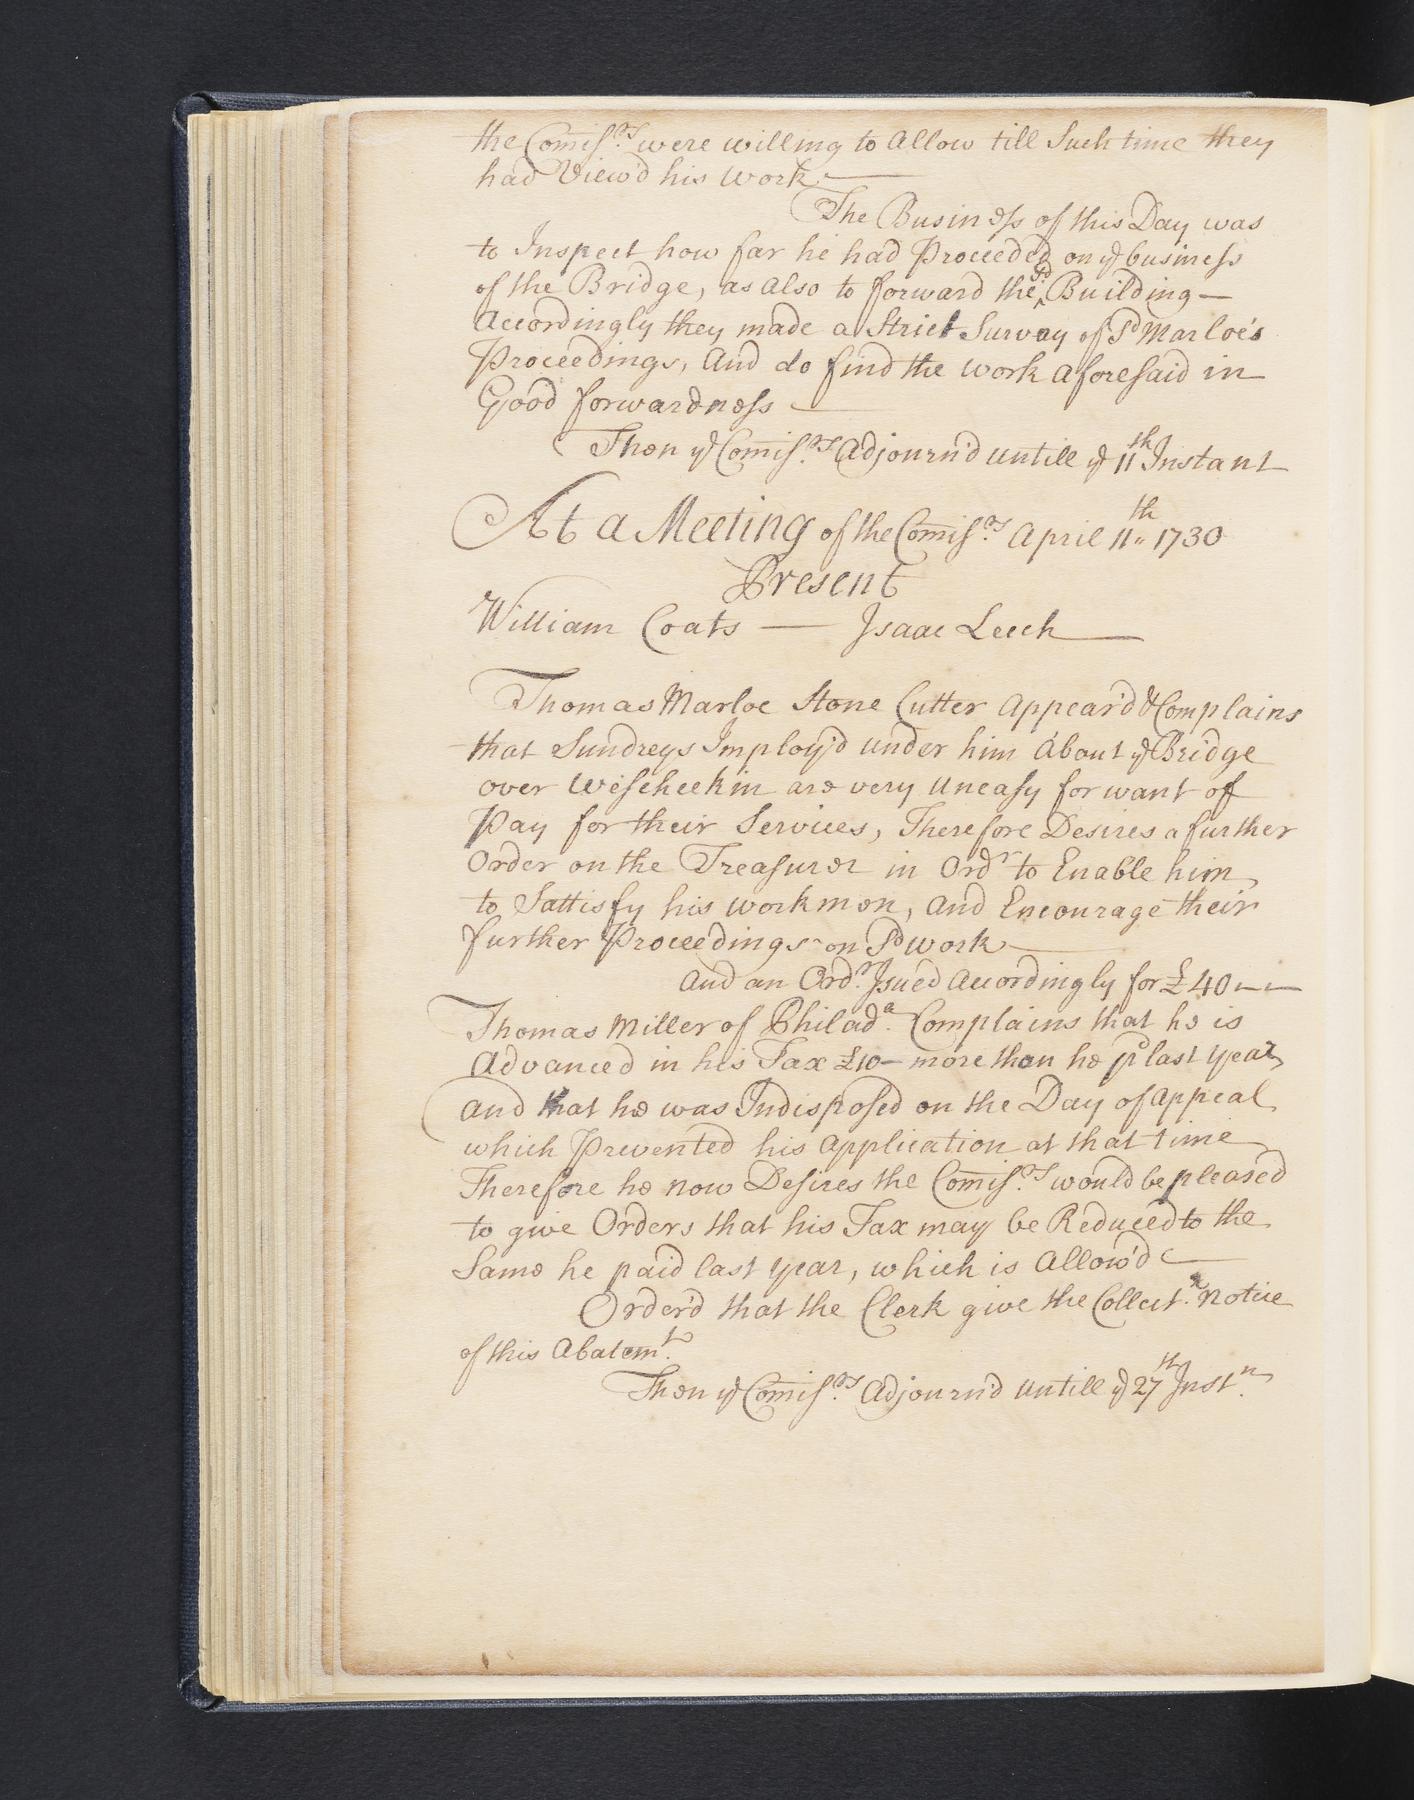 the Comiss.rs were willing to Allow till Such time they
had View'd his Work.
The Business of this Day was
to Inspect how far he had Proceeded on ye business
of the Bridge, as also to forward the sd Building —
Accordingly they made a Strict Survey of Sd Marloe's
Proceedings, And do find the work aforesaid in
Good forwardness
Then ye Comiss.rs Adjourn'd untill ye 11th Instant
At a Meeting of the Comiss.rs April 11th 1730
Present
William Coats — Isaac Leech
Thomas Marloe Stone Cutter Appear'd & Complains
that Sundreys Imploy'd under him About ye Bridge
over Weseheekin are very Uneasy for want of
Pay for their Services, Therefore Desires a further
Order on the Treasurer in Ordr to Enable him
to Sattisfy his workmen, and Encourage their
further Proceedings on Sd work
And an Ord.r Isued Accordingly for £ 40 — —
Thomas Miller of Philad.a Complains that he is
Advanced in his Tax £10 — more than he pd last year
and that he was Indisposed on the Day of appeal
which Prevented his Application at that time
Therefore he now Desires the Comiss.rs would be pleased
to give Orders that his Tax may be Reduced to the
Same he paid last year, which is Allow'd
Order'd that the Clerk give the Collect.r Notice
of this Abatem.t
Then ye Comiss.rs Adjourn'd untill ye 27th Inst.n